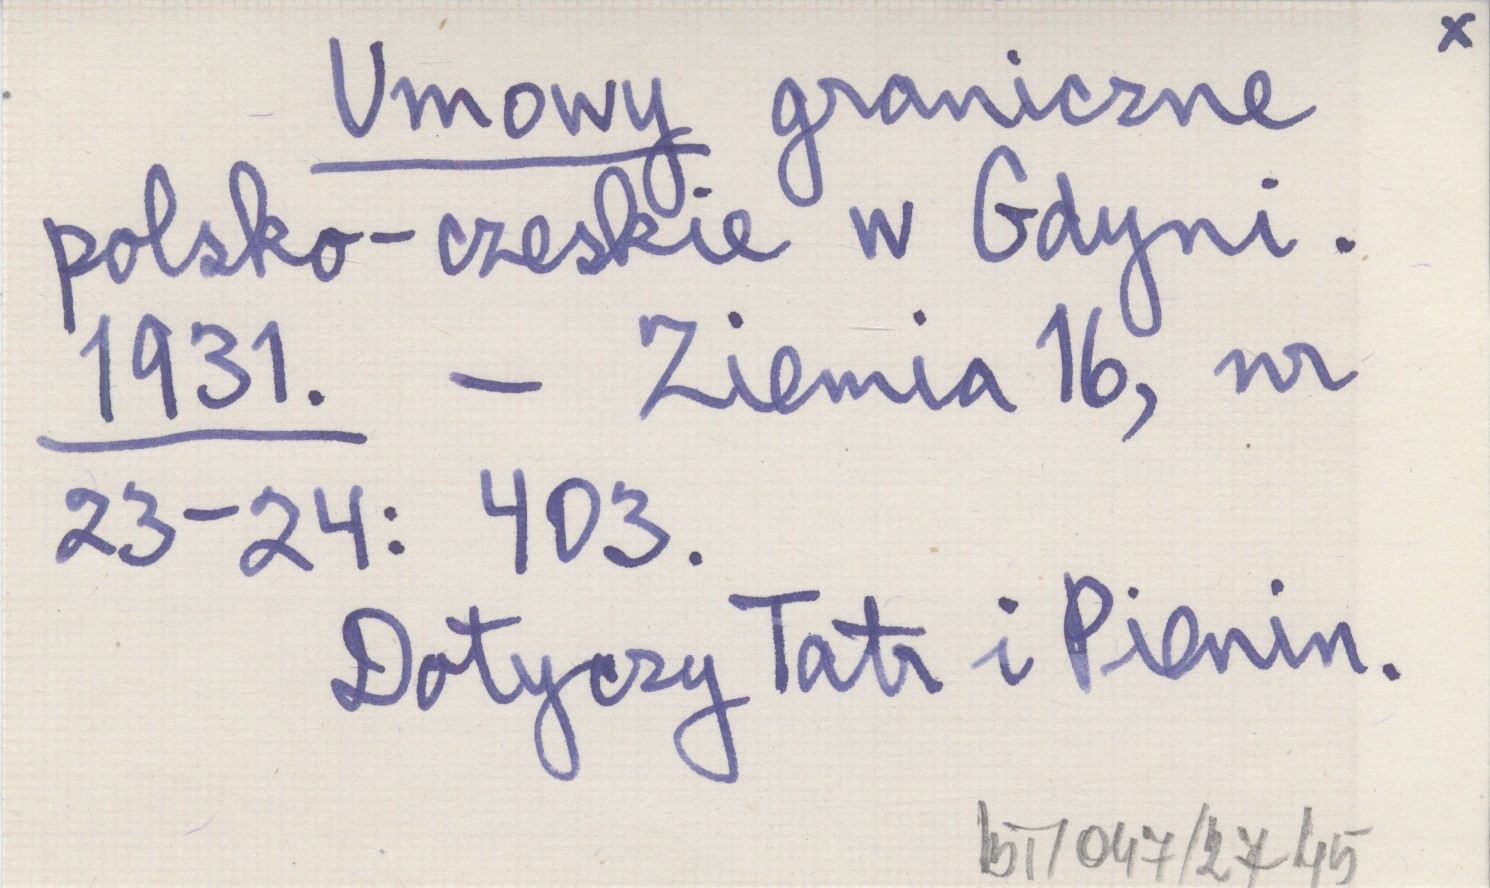 x
Umowy graniczne
polsko-czeskie w Gdyni.
1931. - Ziemia 16, nr
23-24: 403.
Dotyczy Tatr i Pienin.
bT/047/27/45